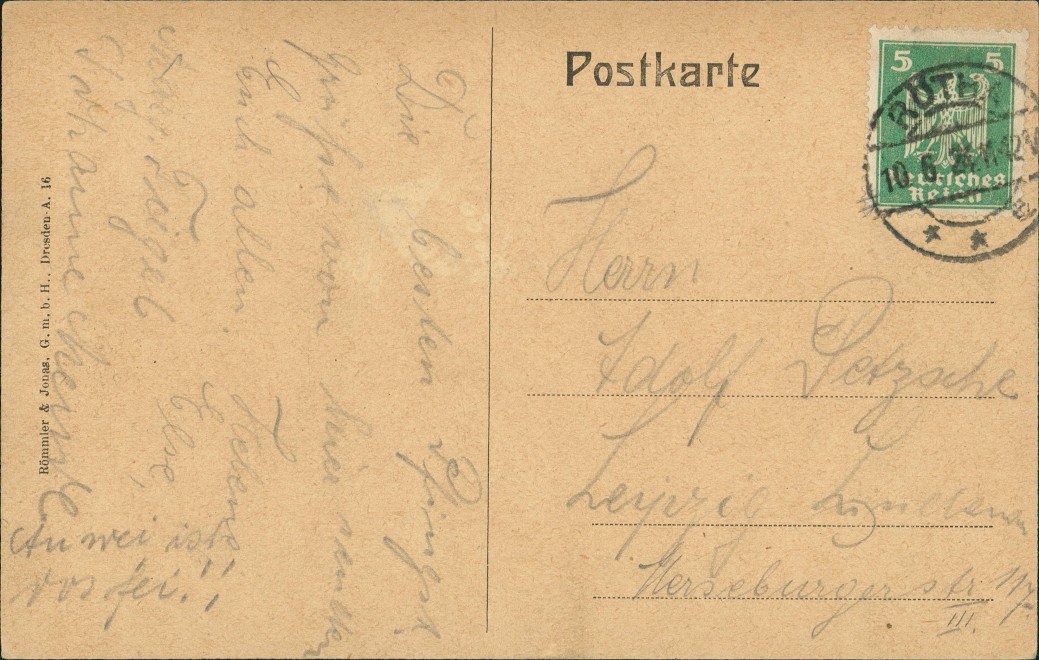 Die besten Pfingst
grüße von hier senden
Euch allen.
Else,
Johanne
Au wei ists
vorbei!!
Römmler & Jonas, G. m. b. H., Dresden-A. 16
Postkarte
5 5
Deutsches
Reich
RÖTHA
10.6.
Herrn
Adolf Petzsche
Leipzig Lindenau
Merseburger str. 117.
III.